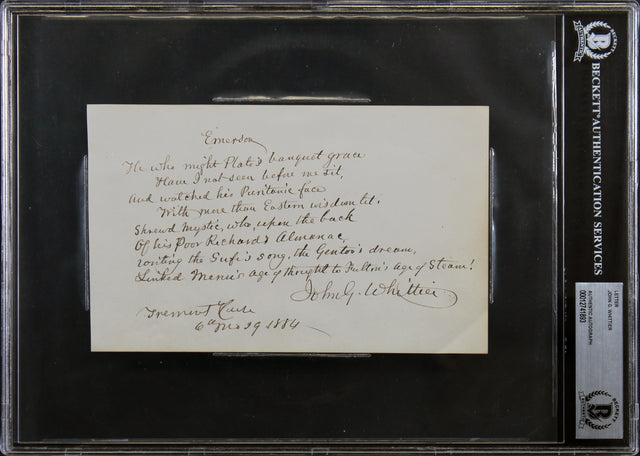 Emerson
He who might Plato's banquet grace
Have I not seen before me sit,
And watched his Puritanic face
With more than Eastern wisdom lit.
Shrewd mystic, who, upon the back
Of his Poor Richard's Almanac,
writing the Sufi's song, the Gentoo's dream,
Linked Menu's age of thought to Fulton's age of Steam!
John G. Whittier
Tremont House
6th Mo 29 1884
BECKETT
AUTHENTICATION
BECKETT AUTHENTICATION SERVICES
LETTER
JOHN G. WHITTIER
AUTHENTIC AUTOGRAPH
00012741893
BECKETT
AUTHENTICATION